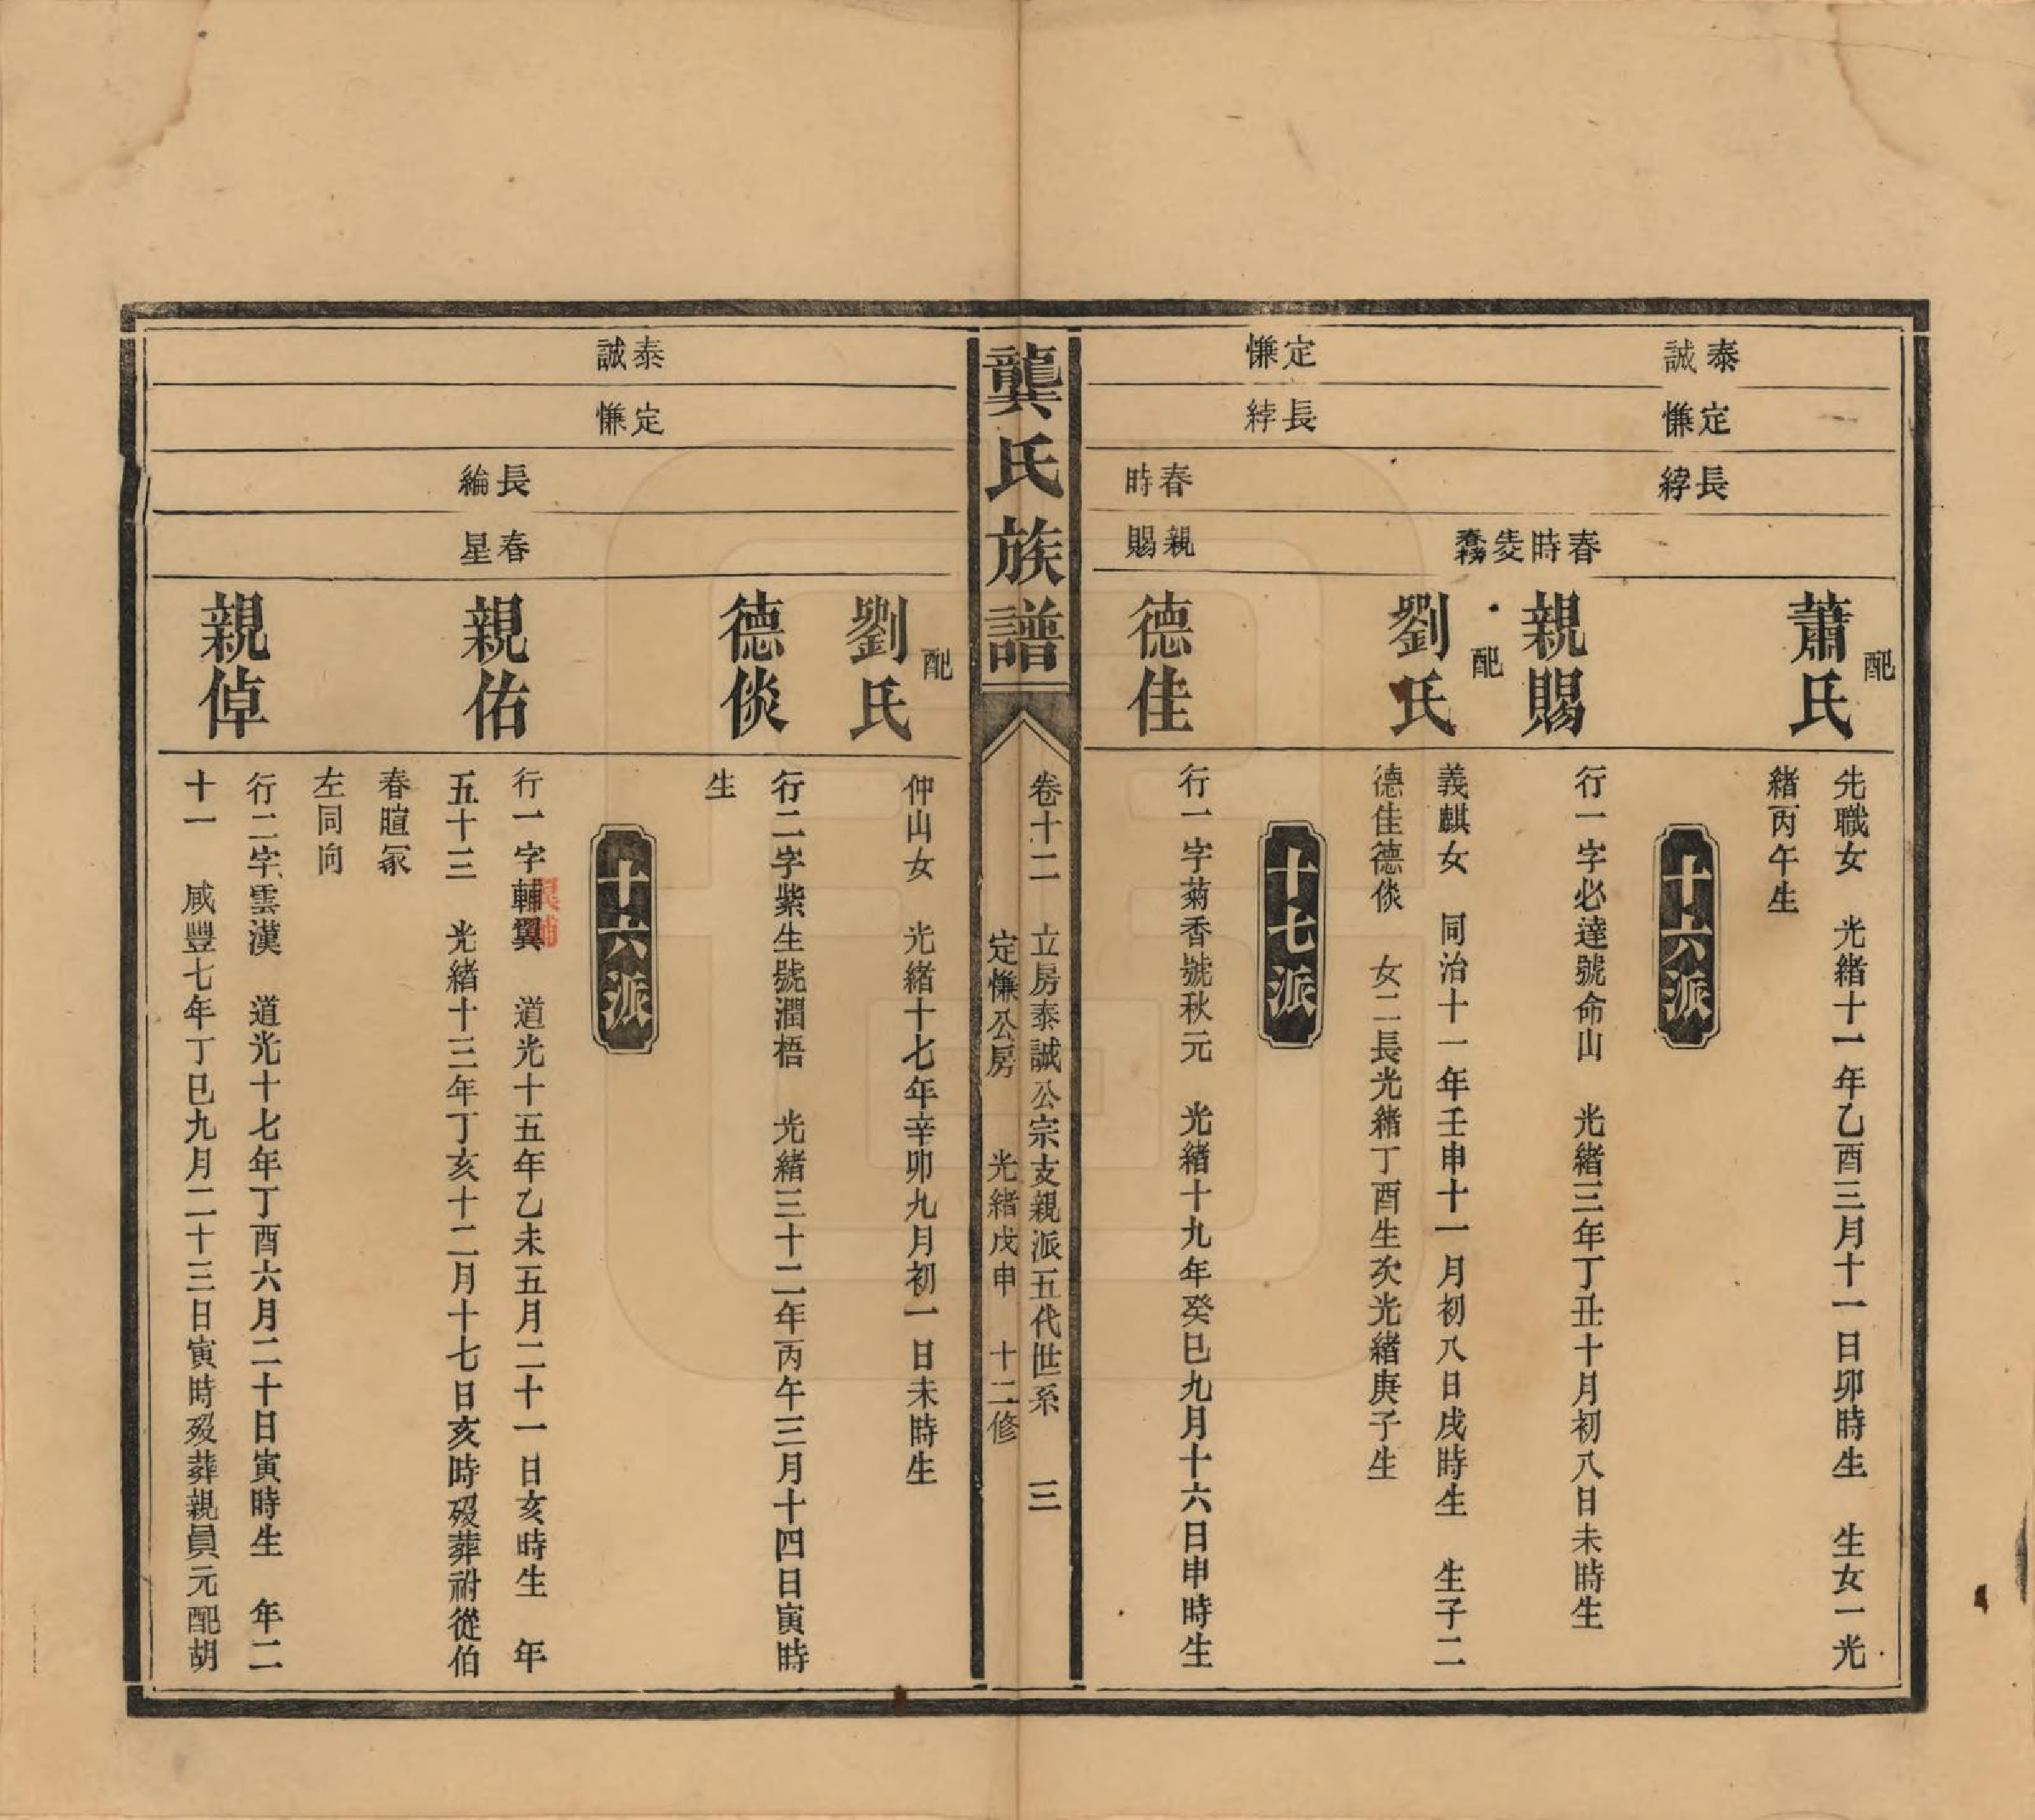 泰誠
定慊
長綍
配
蕭氏
先職女　光緒十一年乙酉三月十一日卯時生　生女一光
緒丙午生
十六派
春時
親賜
行一字必達號命山　光緒三年丁丑十月初八日未時生
配
劉氏
義麒女　同治十一年壬申十一月初八日戌時生　生子二
德佳德倓　女二長光緒丁酉生次光緒庚子生
十七派
定慊
長綍
春時
親賜
德佳
行一字菊香號秋元　光緒十九年癸巳九月十六日申時生
龔氏族譜
卷十二　立房泰誠公宗支親派五代世系　三
定慊公房　光緒戊申　十二修
配
劉氏
仲山女　光緒十七年辛卯九月初一日未時生
德倓
行二字紫生號潤梧　光緒三十二年丙午三月十四日寅時
生
十六派
泰誠
定慊
長綸
春星
親佑
行一字輔翼　道光十五年乙未五月二十一日亥時生　年
五十三　光緒十三年丁亥十二月十七日亥時歿葬祔從伯
春暄冢
左同向
親倬
行二字雲漢　道光十七年丁酉六月二十日寅時生　年二
十一　咸豐七年丁巳九月二十三日寅時歿葬親員元配胡